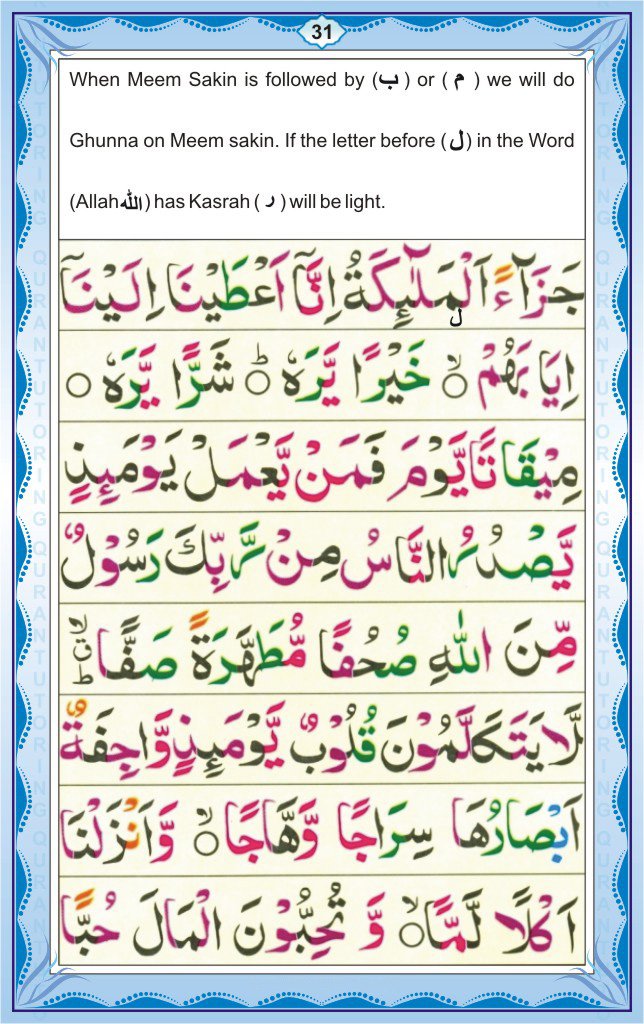 31
When Meem Sakin is followed by (ب) or ( م ) we will do
Ghunna on Meem sakin. If the letter before (ل) in the Word
(Allah الله) has Kasrah ( ر ) will be light.
جَزَآءً اَلْمَلٰٓئِكَةُ اِنَّاۤ اَعْطَيْنَا اِلَيْنَاۤ
ل
اِيَا بَهُمْ ۙ○ خَيْرًا يَّرَهٗ ؕ○ شَرًّا يَّرَهٗ ○
مِيْقَاتًا يَّوْمَ فَمَنْ يَّعْمَلْ يَوْمَئِذٍ
يَّصْدُرُ النَّاسُ مِنْ رَّبِّكَ رَسُوْلٌ
مِّنَ اللّٰهِ صُحُفًا مُّطَهَّرَةً صَفًّا ۙؕق
لَّا يَتَكَلَّمُوْنَ قُلُوْبٌ يَّوْمَئِذٍ وَّاجِفَةٌ
اَبْصَارُهَا سِرَاجًا وَّهَّاجًا ۙ○ وَّاَنْزَلْنَا
اَكْلًا لَّمًّا ۙ○ وَّ تُحِبُّوْنَ الْمَالَ حُبًّا
QURAN TUTORING QURAN TUTORING QURAN TUTORING
QURAN TUTORING QURAN TUTORING QURAN TUTORING